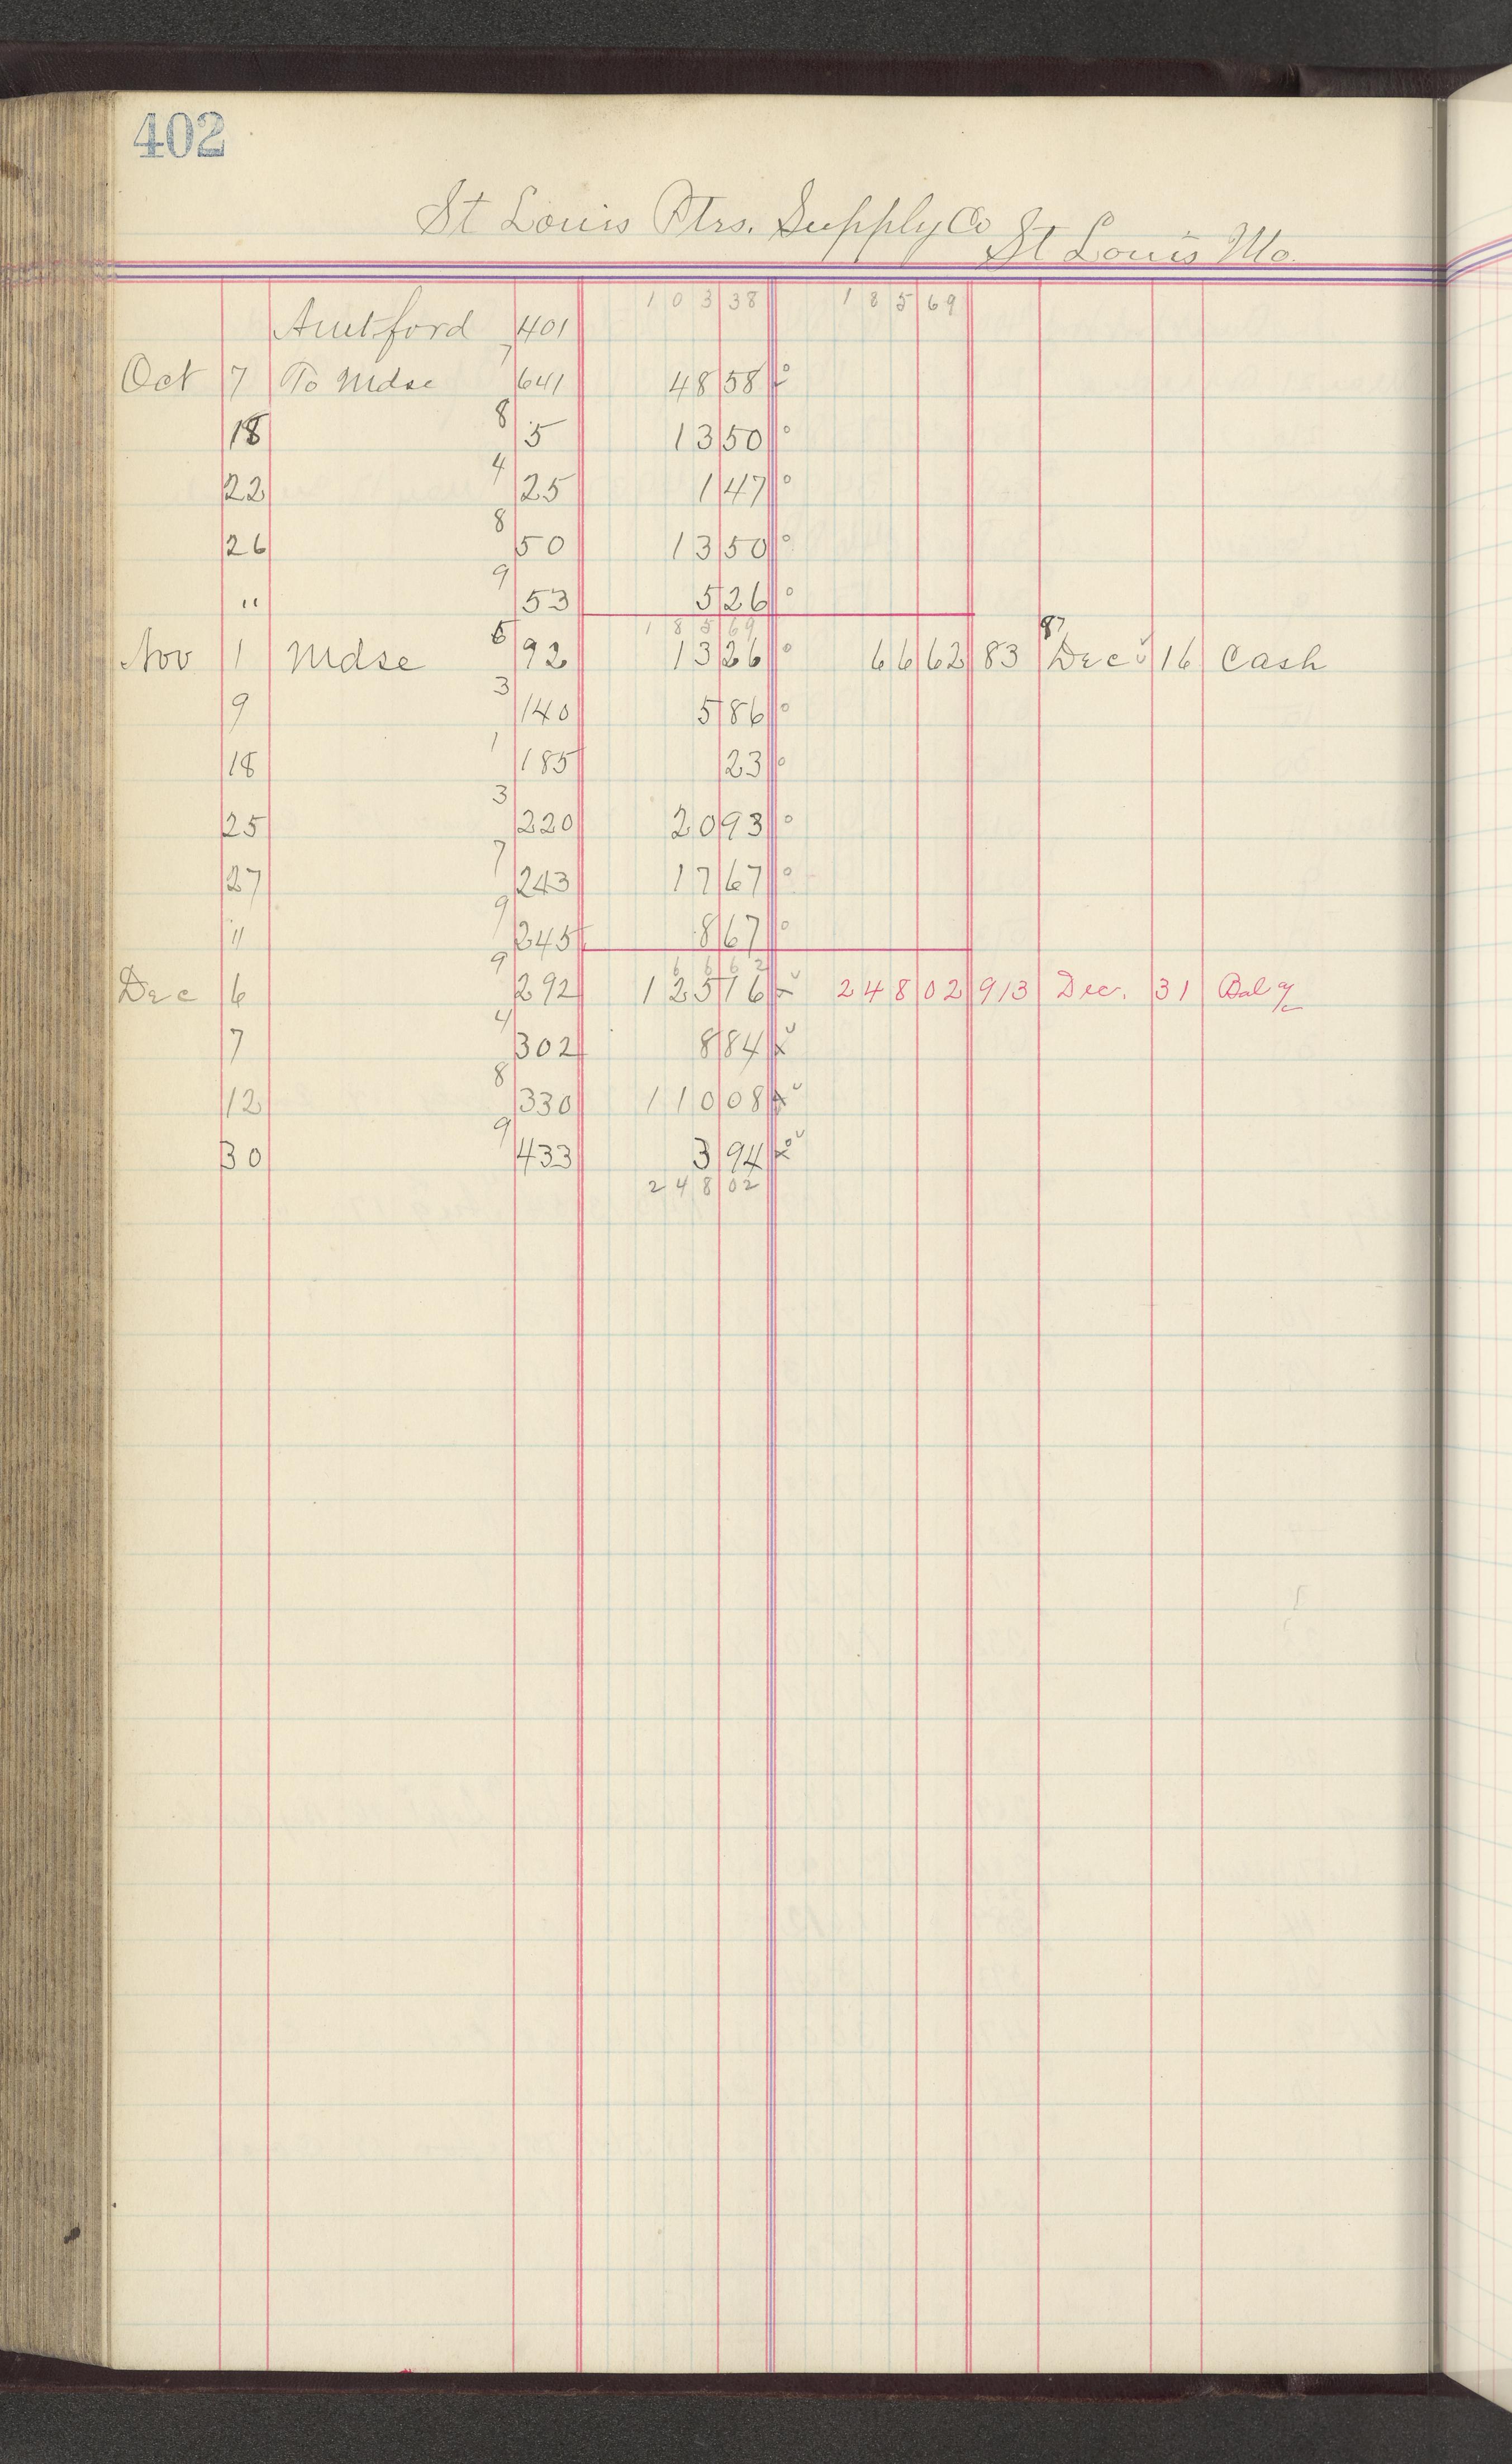 402
St Louis Ptrs. Supply Co St Louis Mo.
103 38 185 69
Amt ford 401
Oct 7 To Mdse 7 641 48 58
18 8 5 13 50
22 4 25 1 47
26 8 50 13 50
" 9 53 5 26
185 69
Nov 1 Mdse 5 92 13 26 66 62 83 87 Dec 16 Cash
9 3 140 5 86
18 1 185 23
25 3 220 20 93
27 7 243 17 67
" 9 245 8 67
66 62
Dec 6 9 292 125 16 248 02 913 Dec. 31 Bal
7 4 302 8 84
12 8 330 110 08
30 9 433 3 94
248 02